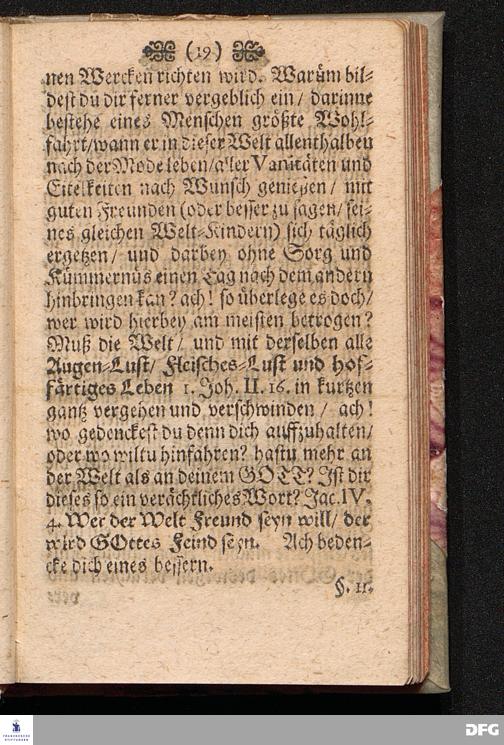 (19)
nen Wercken richten wird. Warům bil-
dest du dir ferner vergeblich ein/ darinne
bestehe eines Menschen größte Wohl-
fahrt/wann er in dieser Welt allenthalben
nach der Mode leben/aller Vanitäten und
Eitelkeiten nach Wunsch genießen/ mit
guten Freunden (oder besser zu sagen/ sei-
nes gleichen Welt-Kindern) sich täglich
ergetzen/ und darbey ohne Sorg und
Kümmernüs einen Tag nach dem andern
hinbringen kan? ach! so überlege es doch/
wer wird hierbey am meisten betrogen?
Muß die Welt/ und mit derselben alle
Augen-Lust/ Fleisches-Lust und hof-
färtiges Leben 1. Joh. II. 16. in kurtzen
gantz vergehen und verschwinden/ ach!
wo gedenckest du denn dich auffzuhalten/
oder wo wiltu hinfahren? hastu mehr an
der Welt als an deinem GOTT? Ist dir
dieses so ein verächtliches Wort? Jac. IV.
4. Wer der Welt Freund seyn will/ der
wird GOttes Feind seyn. Ach beden-
cke dich eines bessern.
§. 11.
FRANCKESCHE
STIFTUNGEN
DFG